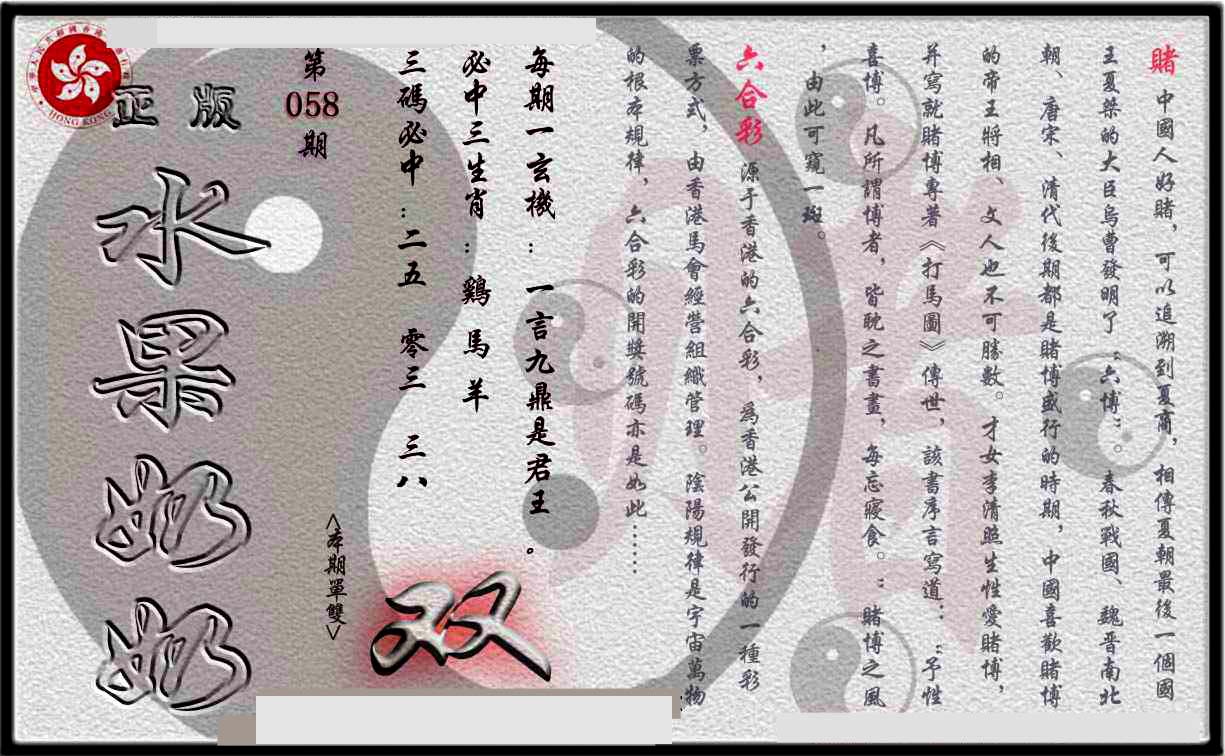 賭 中國人好賭，可以追溯到夏商，相傳夏朝最後一個國
王夏桀的大臣烏曹發明了“六博”。春秋戰國、魏晉南北
朝、唐宋、清代後期都是賭博盛行的時期，中國喜歡賭博
的帝王將相、文人也不可勝數。才女李清照生性愛賭博，
并寫就賭博專著《打馬圖》傳世，該書序言寫道：“予性
喜博。凡所謂博者，皆耽之書畫，每忘寢食。”賭博之風
，由此可窺一斑。
六合彩 源于香港的六合彩，為香港公開發行的一種彩
票方式，由香港馬會經營組織管理。陰陽規律是宇宙萬物
的根本規律，六合彩的開獎號碼亦是如此……
每期一玄機：一言九鼎是君王。
必中三生肖：鷄 馬 羊
三碼必中：二五 零三 三八
<本期單雙>
双
第
058
期
正版
水果奶奶
HONG KONG